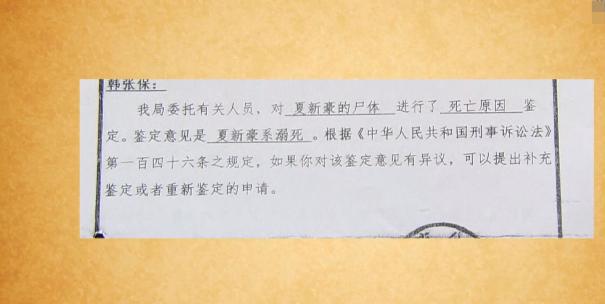 韩张保：
我局委托有关人员，对 夏新豪的尸体 进行了 死亡原因 鉴
定。鉴定意见是 夏新豪系溺死 。根据《中华人民共和国刑事诉讼法》
第一百四十六条之规定，如果你对该鉴定意见有异议，可以提出补充
鉴定或者重新鉴定的申请。